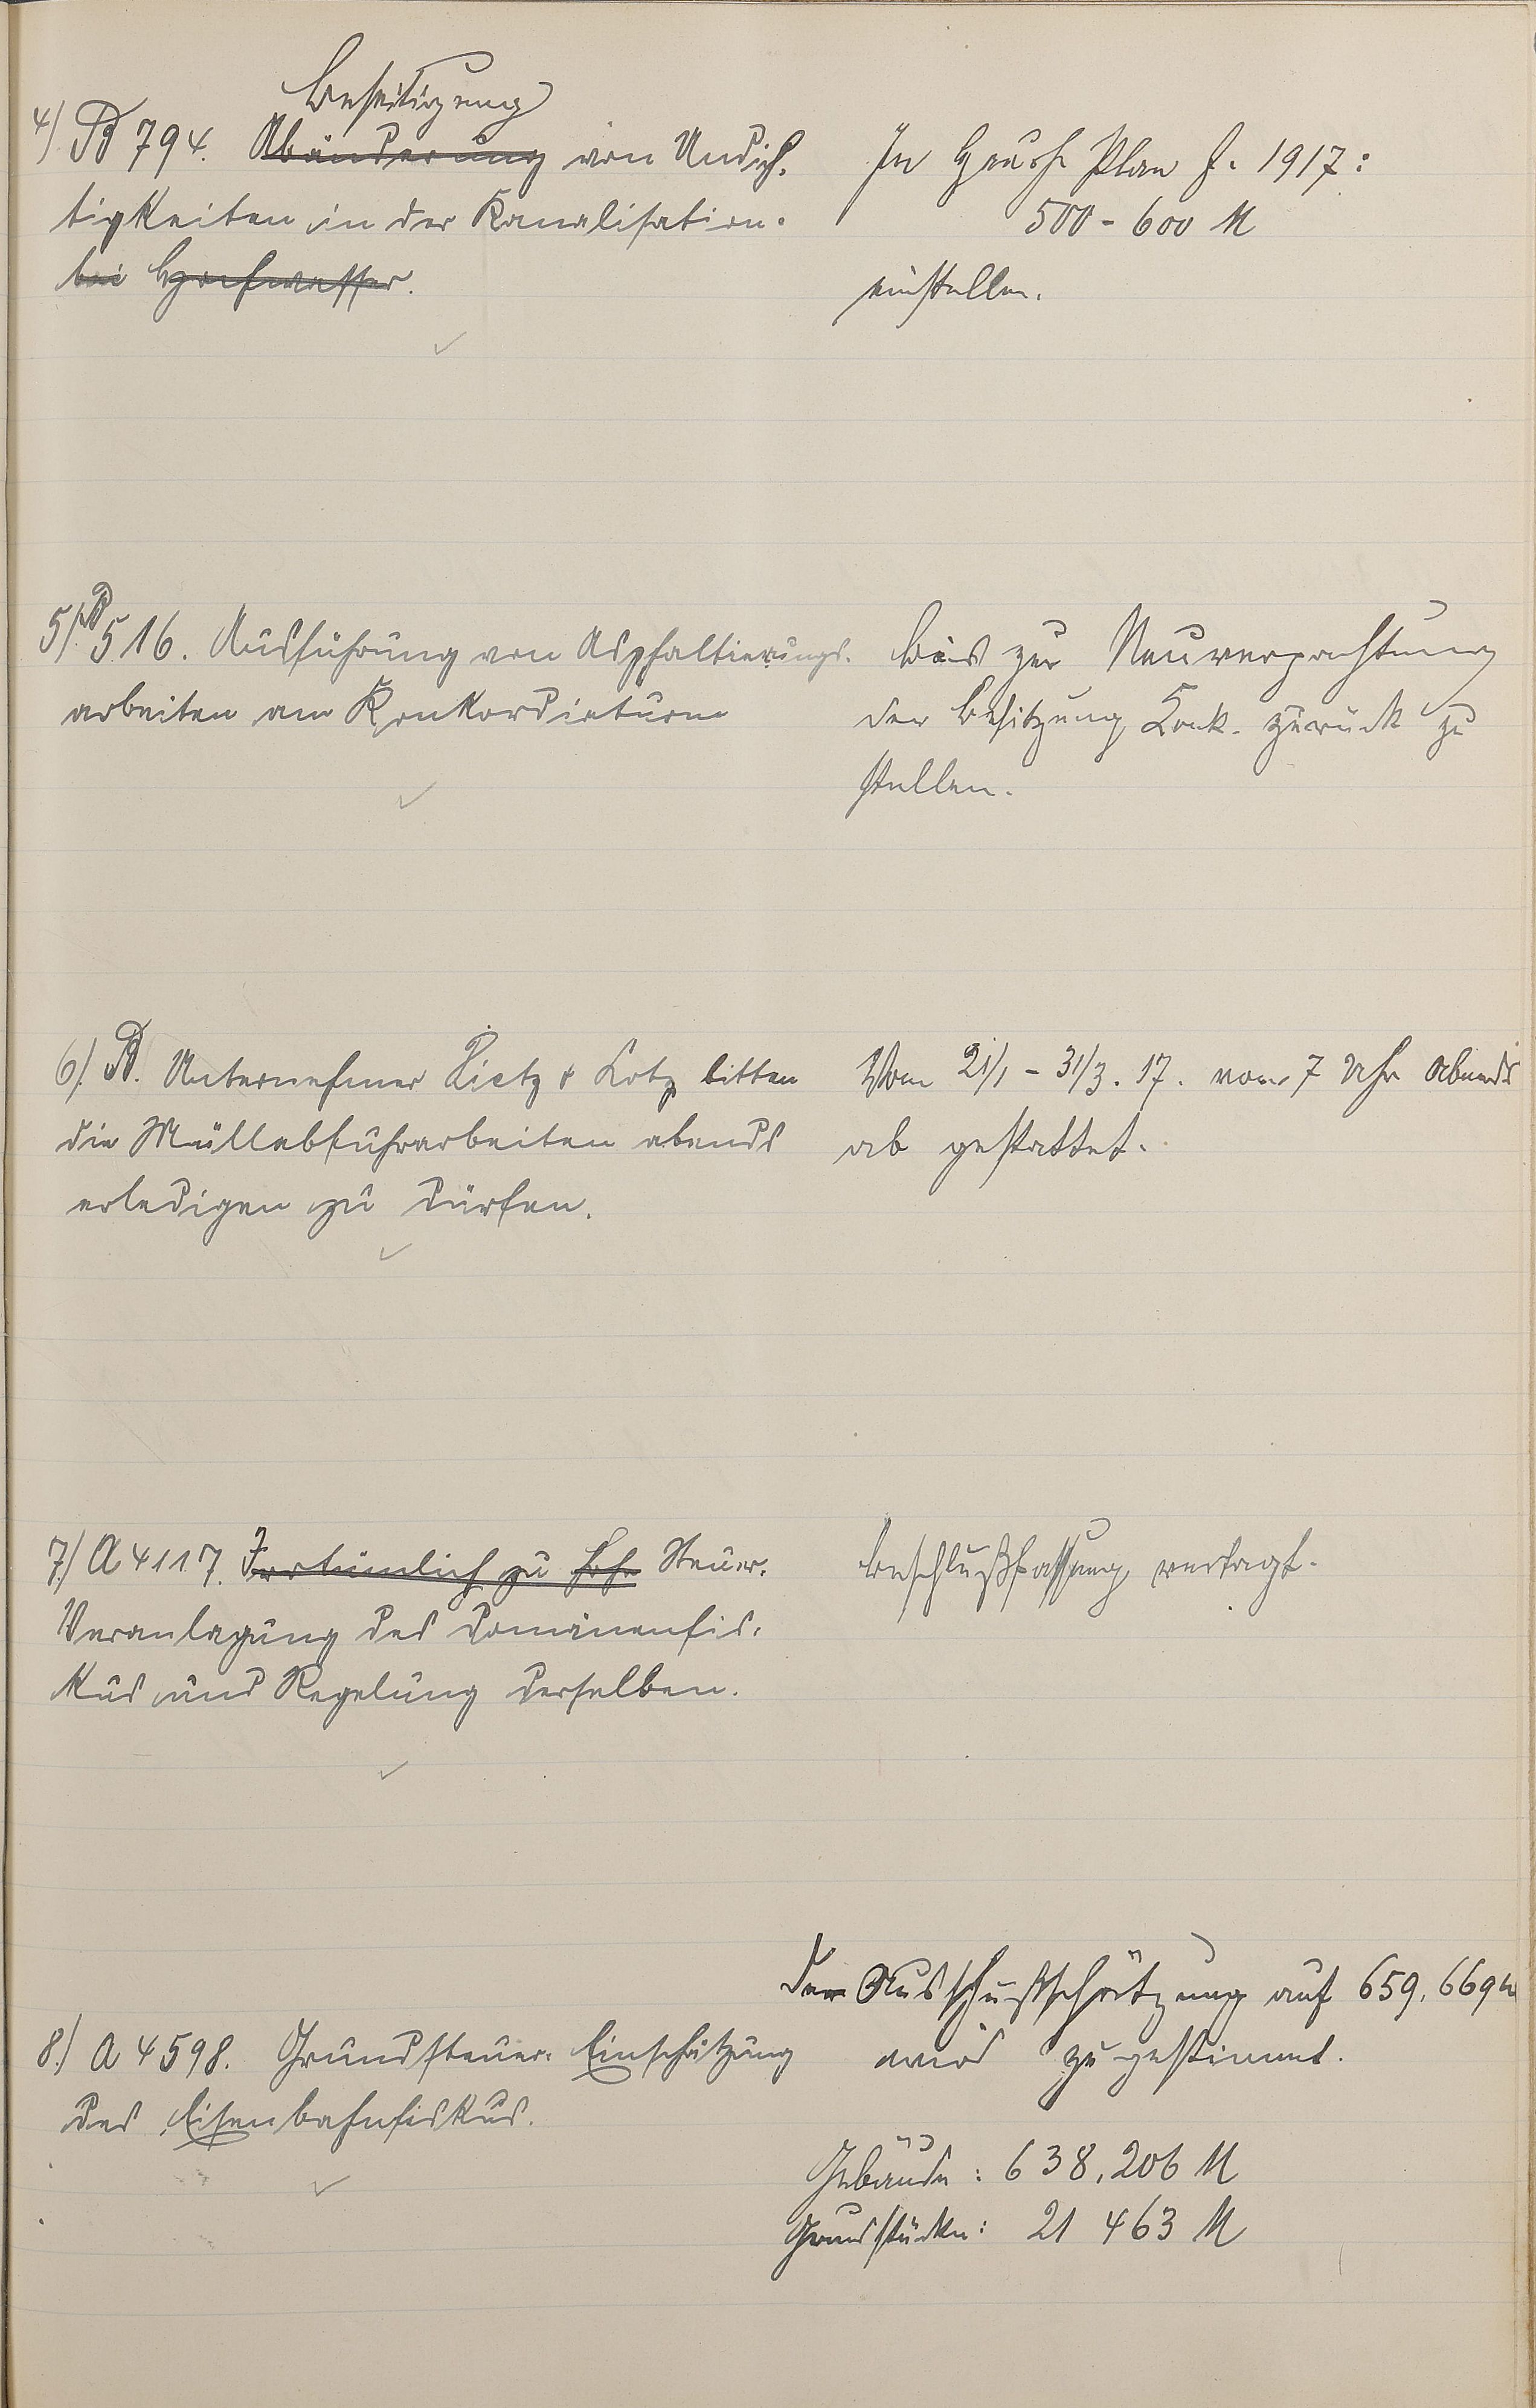 Beseitigung
4) B 794. Abänderung von Undich-
tigkeiten in der Kanalisation.
bei Hochwasser.
In Haush. Plan f. 1917:
500 - 600 M
einstellen.
5). B 516. Ausführung von Asphaltierungs-
arbeiten am Konkordiaturm
Bis zur Neuverpachtung
der Besitzung Konk. zurück zu
stellen.
6). B. Unternehmer Dietz & Lotz bitten
die Müllabfuhrarbeiten abends
erledigen zu dürfen.
Vom 21/1 - 31/3. 17. von 7 Uhr Abends
ab gestattet.
7.) A 4117. Irrtümlich zu hohe Steuer-
Veranlagung des Domänenfis-
kus und Regelung derselben.
Beschlußfassung vertagt.
Der Ausschußschätzung auf 659,669 M
wird zugestimmt.
8.) A 4598. Grundsteuer-Einschätzung
des Eisenbahnfiskus.
Gebäude: 638,206 M
Grundstücke: 21 463 M